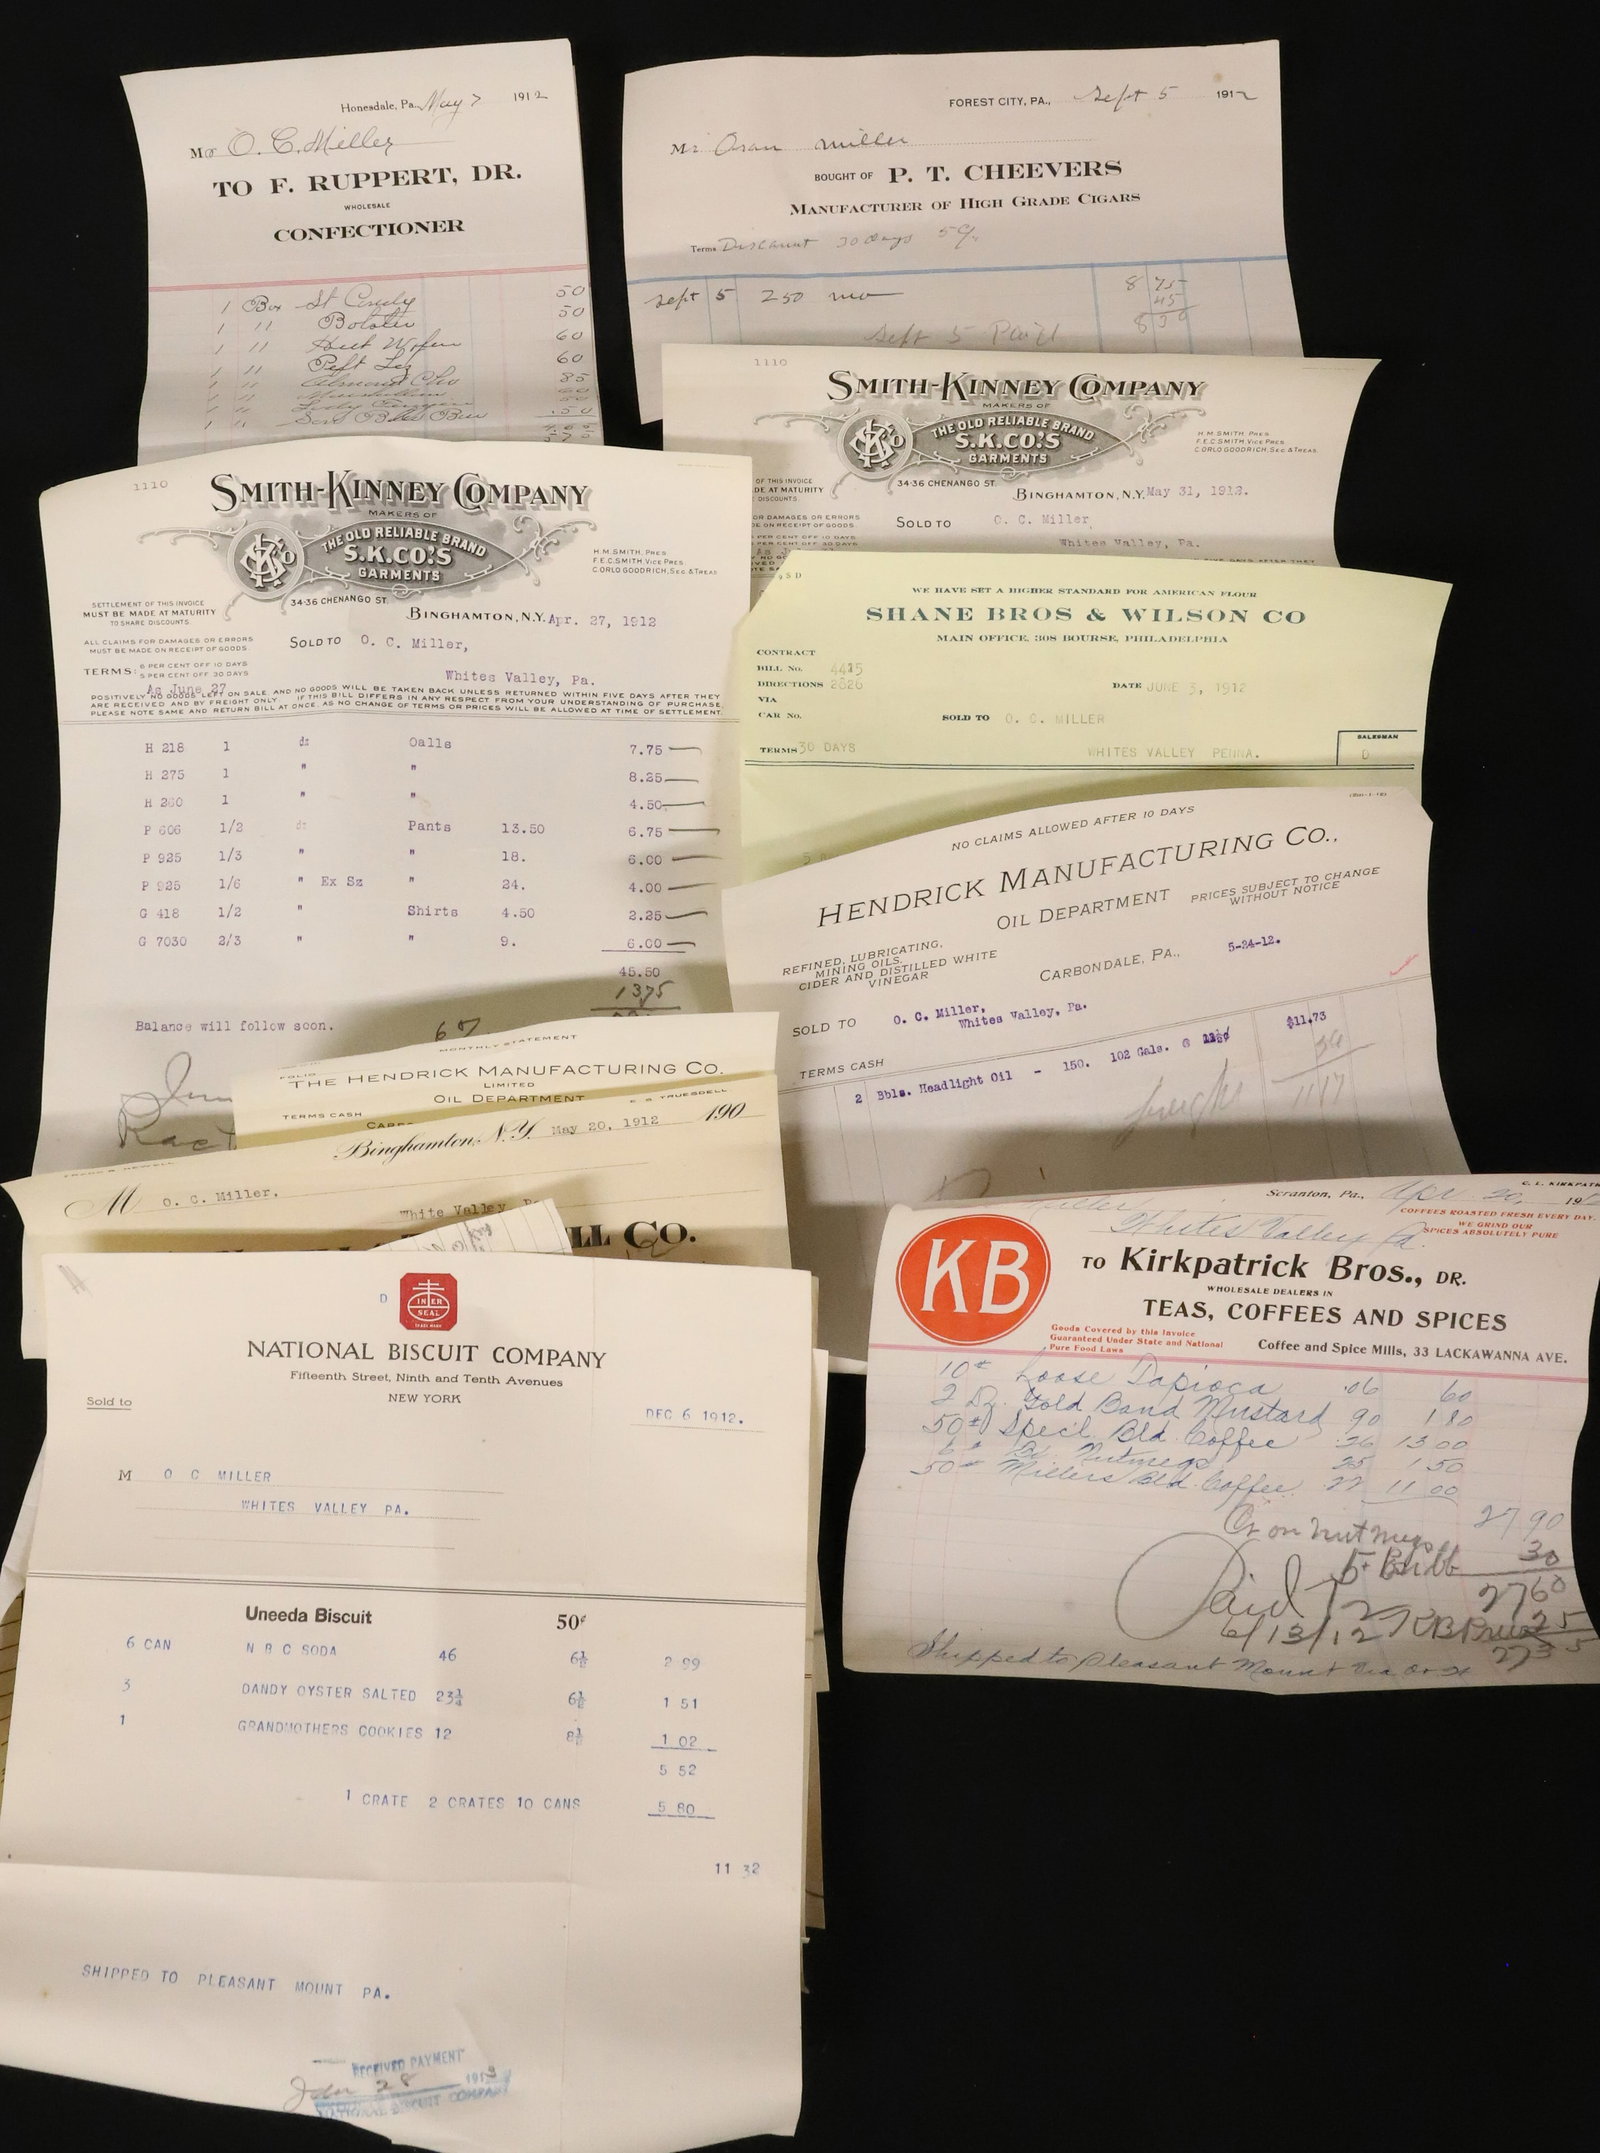 Honesdale, Pa. May 7 1912
Mr O. C. Miller
TO F. RUPPERT, DR.
WHOLESALE
CONFECTIONER
1 Box St Candy 50
1 " Bolster 50
1 " 60
1 " 60
1 " Almond 85
1 "
1 "
1 " .50
FOREST CITY, PA., Sept 5 1912
Mr Oran Miller
BOUGHT OF P. T. CHEEVERS
MANUFACTURER OF HIGH GRADE CIGARS
Terms Discount 30 days 5%
Sept 5 250 mo 8 75
45
8 30
Sept 5 Paid
1110
SMITH-KINNEY COMPANY
MAKERS OF
THE OLD RELIABLE BRAND
S.K.CO'S
GARMENTS
H.M. SMITH, PRES.
F.E.C. SMITH, VICE PRES.
C. ORLO GOODRICH, SEC. & TREAS.
34-36 CHENANGO ST.
OF THIS INVOICE
DE AT MATURITY
DISCOUNTS.
BINGHAMTON, N.Y. May 31, 1912.
OR DAMAGES OR ERRORS
E ON RECEIPT OF GOODS.
SOLD TO O. C. Miller
PER CENT OFF 10 DAYS
PER CENT OFF 30 DAYS
Whites Valley, Pa.
1110
SMITH-KINNEY COMPANY
MAKERS OF
THE OLD RELIABLE BRAND
S.K.CO'S
GARMENTS
H.M. SMITH, PRES.
F.E.C. SMITH, VICE PRES.
C. ORLO GOODRICH, SEC. & TREAS
34-36 CHENANGO ST.
SETTLEMENT OF THIS INVOICE
MUST BE MADE AT MATURITY
TO SHARE DISCOUNTS.
BINGHAMTON, N.Y. Apr. 27, 1912
ALL CLAIMS FOR DAMAGES OR ERRORS
MUST BE MADE ON RECEIPT OF GOODS.
SOLD TO O. C. Miller,
TERMS: 6 PER CENT OFF 10 DAYS
5 PER CENT OFF 30 DAYS
Whites Valley, Pa.
As June 27
POSITIVELY NO GOODS LEFT ON SALE, AND NO GOODS WILL BE TAKEN BACK UNLESS RETURNED WITHIN FIVE DAYS AFTER THEY
ARE RECEIVED AND BY FREIGHT ONLY IF THIS BILL DIFFERS IN ANY RESPECT FROM YOUR UNDERSTANDING OF PURCHASE,
PLEASE NOTE SAME AND RETURN BILL AT ONCE, AS NO CHANGE OF TERMS OR PRICES WILL BE ALLOWED AT TIME OF SETTLEMENT.
H 218 1 dz Oalls 7.75
H 275 1 " " 8.25
H 260 1 " " 4.50
P 606 1/2 dz Pants 13.50 6.75
P 925 1/3 " " 18. 6.00
P 925 1/6 " Ex Sz " 24. 4.00
G 418 1/2 " Shirts 4.50 2.25
G 7030 2/3 " " 9. 6.00
45.50
1375
Balance will follow soon.
WE HAVE SET A HIGHER STANDARD FOR AMERICAN FLOUR
SHANE BROS & WILSON CO
MAIN OFFICE, 308 BOURSE, PHILADELPHIA
CONTRACT
BILL No. 4415
DIRECTIONS 2826
VIA
CAR No.
DATE JUNE 3, 1912
SOLD TO O. C. MILLER
TERMS 30 DAYS
WHITES VALLEY PENNA.
SALESMAN
D
NO CLAIMS ALLOWED AFTER 10 DAYS
HENDRICK MANUFACTURING CO.,
OIL DEPARTMENT
PRICES SUBJECT TO CHANGE
WITHOUT NOTICE
REFINED, LUBRICATING,
MINING OILS,
CIDER AND DISTILLED WHITE
VINEGAR
CARBONDALE, PA., 5-24-12.
SOLD TO O. C. Miller,
Whites Valley, Pa.
TERMS CASH
2 Bbls. Headlight Oil - 150. 102 Gals. @ 11½¢ $11.73
freight
1117
MONTHLY STATEMENT
FOLIO
THE HENDRICK MANUFACTURING CO.
LIMITED
OIL DEPARTMENT
TERMS CASH
E. G. TRUESDELL
Binghamton, N.Y. May 20, 1912 190
M O. C. Miller,
White Valley, Pa
LL CO.
D
IN ER
SEAL
TRADE MARK
NATIONAL BISCUIT COMPANY
Fifteenth Street, Ninth and Tenth Avenues
NEW YORK
Sold to
DEC 6 1912.
M O C MILLER
WHITES VALLEY PA.
Uneeda Biscuit 50¢
6 CAN N B C SODA 46 6½ 2 99
3 DANDY OYSTER SALTED 23¼ 6½ 1 51
1 GRANDMOTHERS COOKIES 12 8½ 1 02
5 52
1 CRATE 2 CRATES 10 CANS 5 80
11 32
SHIPPED TO PLEASANT MOUNT PA.
RECEIVED PAYMENT
Jan 28 1913
NATIONAL BISCUIT COMPANY
C. L. KIRKPATR
Scranton, Pa., Apr. 20, 191
Miller
COFFEES ROASTED FRESH EVERY DAY.
WE GRIND OUR
SPICES ABSOLUTELY PURE
Whites Valley Pa.
KB
TO Kirkpatrick Bros., DR.
WHOLESALE DEALERS IN
TEAS, COFFEES AND SPICES
Goods Covered by this Invoice
Guaranteed Under State and National
Pure Food Laws
Coffee and Spice Mills, 33 LACKAWANNA AVE.
10# Loose Tapioca .06 60
2 Dz. Gold Band Mustard 90 1 80
50# Spec'l. Bld. Coffee 26 13 00
Nutmegs 25 1 50
50# Millers Bld. Coffee 22 11 00
27 90
Cr on Nutmegs
30
2760
Paid
6/13/12
25
2735
Shipped to Pleasant Mount Via O & W